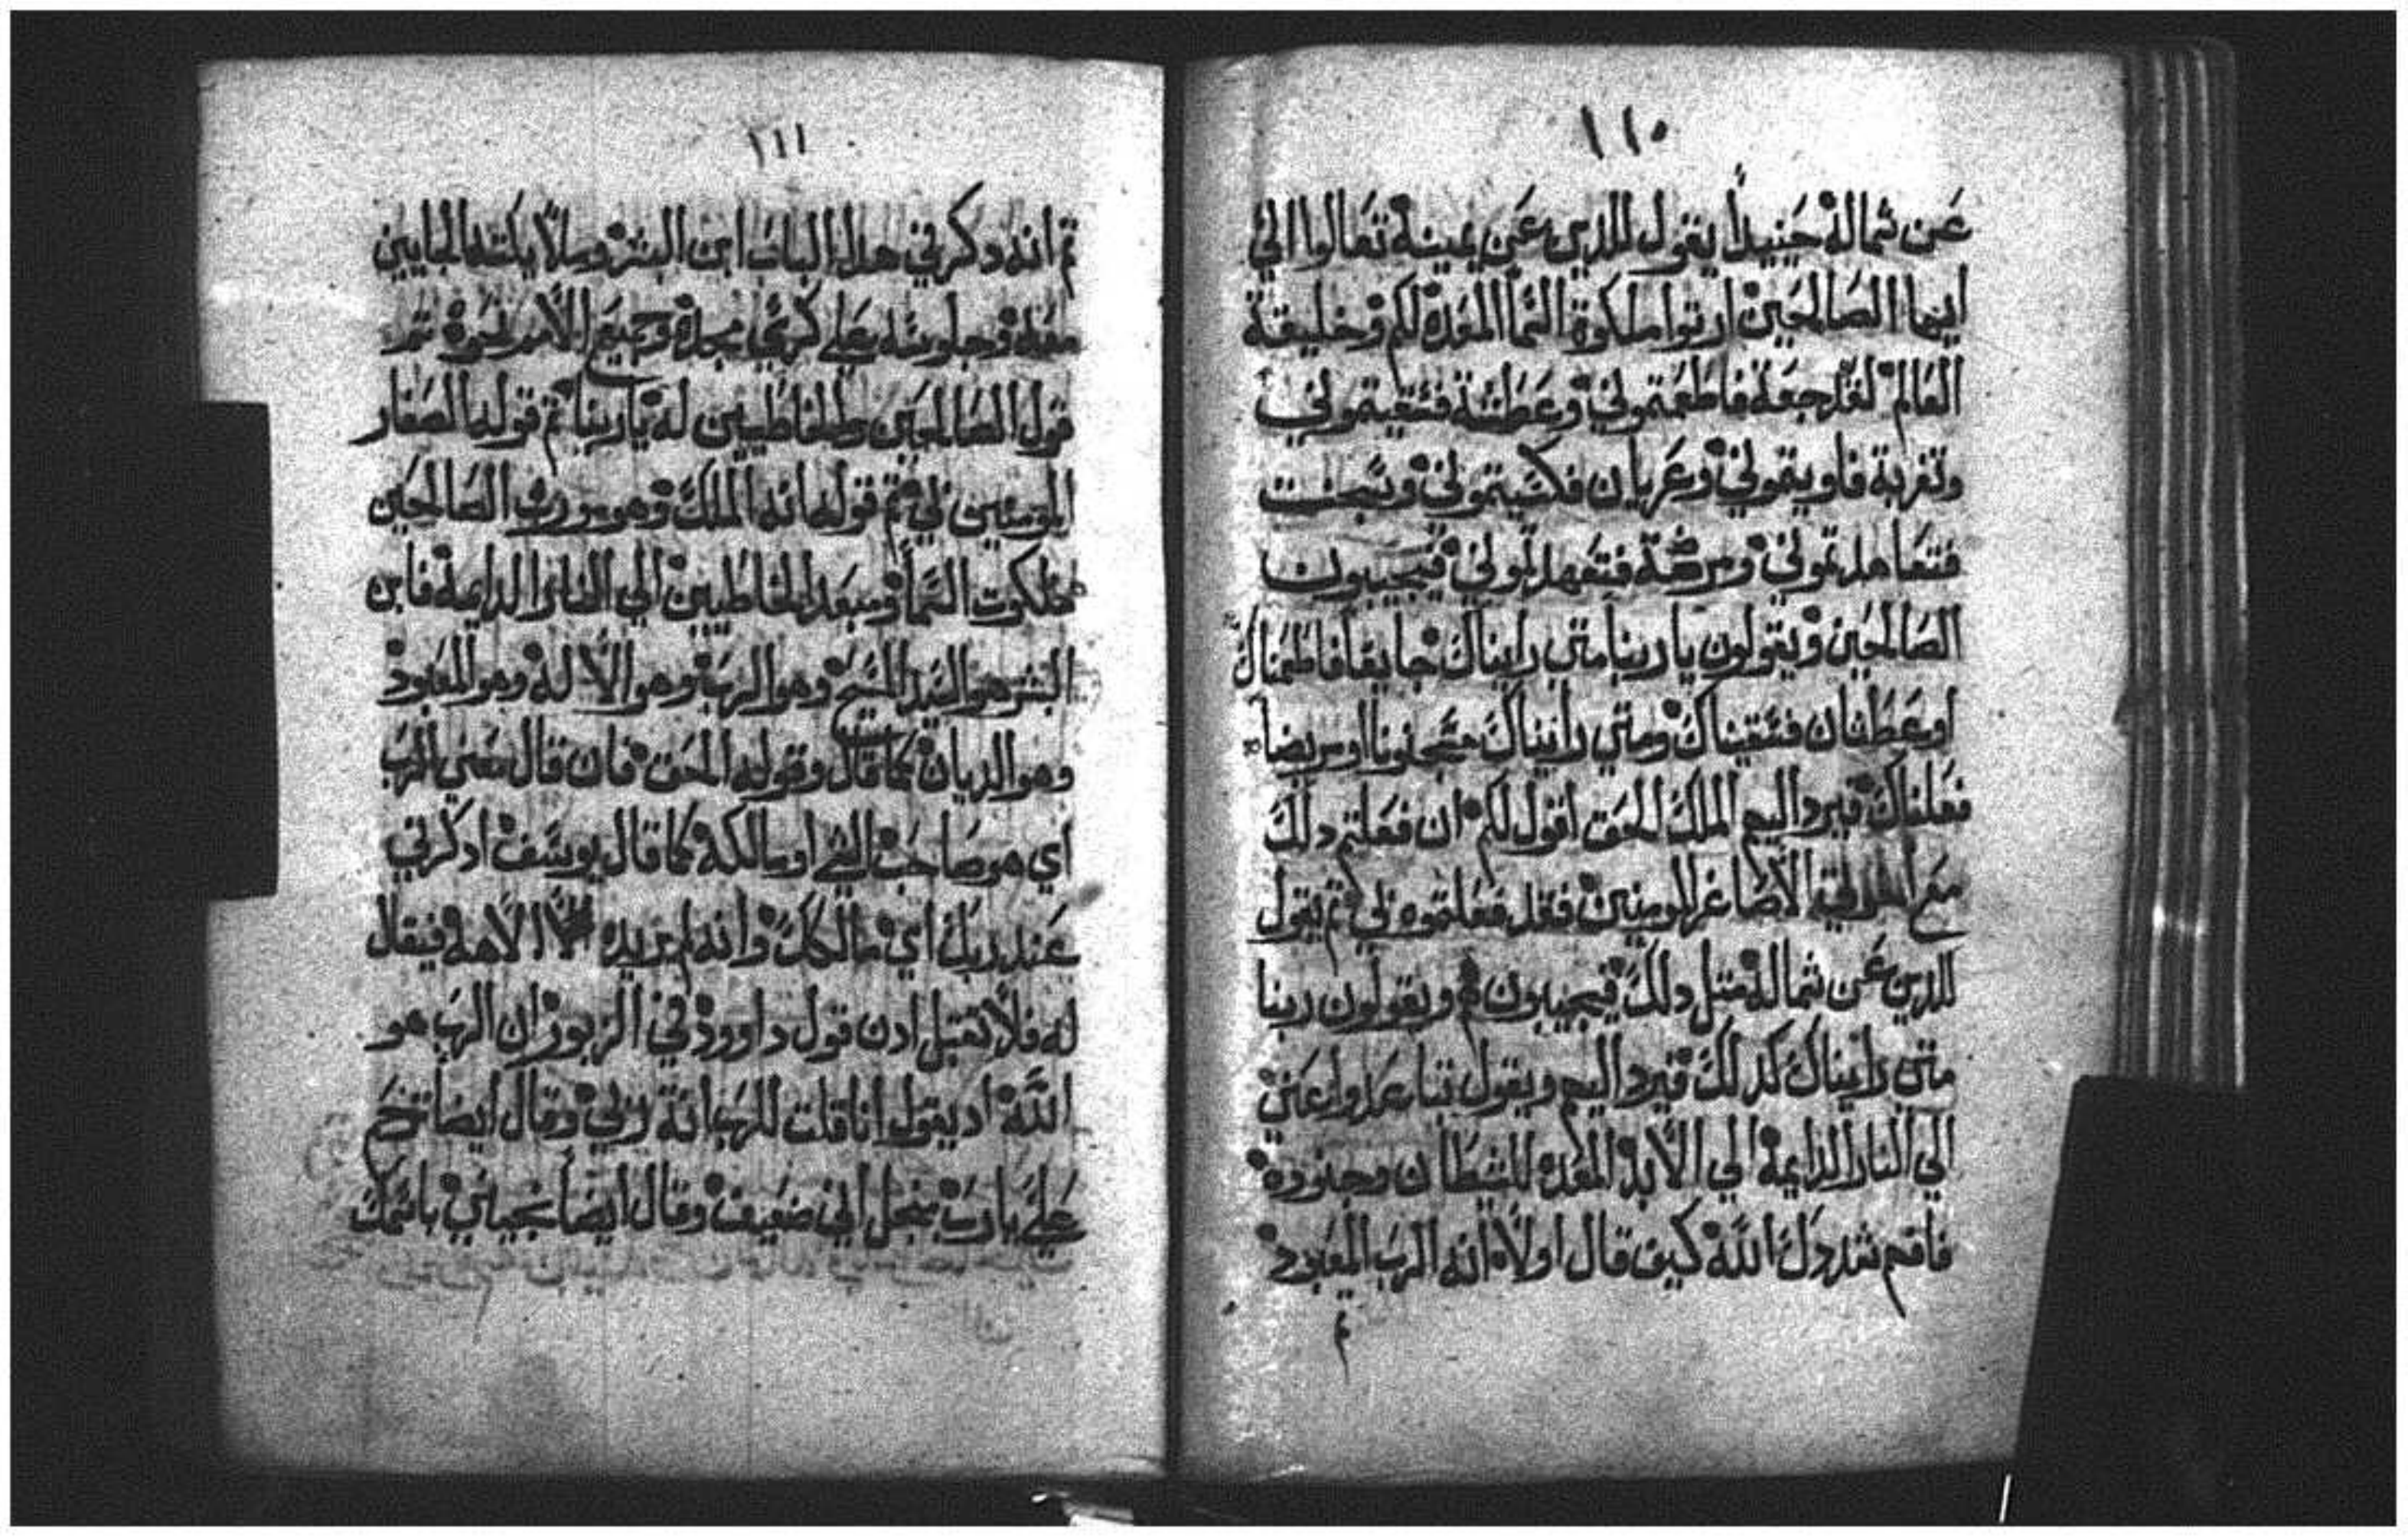 ١١٠
عن شماله حينيدا يقول للدين عن يمينه تعالوا الي
ايها الصالحين ارتوا ملكوة السما المعده لكم وخليقة
العالم لغد جعة فاطعمتموني وعطشة فسقيتموني
وتغربة فاويتموني وعريان فكسيتموني وسجنت
فتعاهدتموني ومرضة فتعهدتموني فيجيبون
الصالحين ويقولون يا ربنا متي رايناك جايعا فاطعمناك
او عطشان فسقيناك ومتي رايناك مسجونا او مريضا
فعلناك فيرد اليهم الملك الحق اقول لكم ان فعلتم دلك
مع الاصاغر المومنين فقد فعلتموه لي ثم يقول
للدين عن شماله متل دلك فيجيبون هم ويقولون ربنا
متي رايناك كدلك فيرد اليهم ويقول تباعدوا عني
الي النار الدايمة الي الابد المعده للشيطان وجنوده
فافهم شددك الله كيف قال اولا انه الرب المعبود
تم
١١١
تم انه دكر في هدا الباب ابن البشر وملايكته الجايين
معه وجلوسه علي كرسي مجده وجميع الامم نحوه تم
قول الصالحين والخاطيين له يا ربنا تم قوله الصغار
المومنين لي تم قوله انه الملك وهو مورث الصالحين
ملكوت السما ومبعد الخاطيين الي النار الدايمة فابن
البشر هو السيد المسيح وهو الرب وهو الاله وهو المعبود
وهو الديان كما قال وقوله الحق فان قال معني الرب
اي هو صاحب الشي او مالكه كما قال يوسف ادكرني
عند ربك اي مالكك وانه لم يريد الالاهة فيقال
له فلا تقبل ادن قول داوود في الزبور ان الرب هو
الله اد يقول انا قلت للرب انة ربي وقال ايضا ترحم
علي يا رب من اجل اني ضعيف وقال ايضا نجيني باسمك